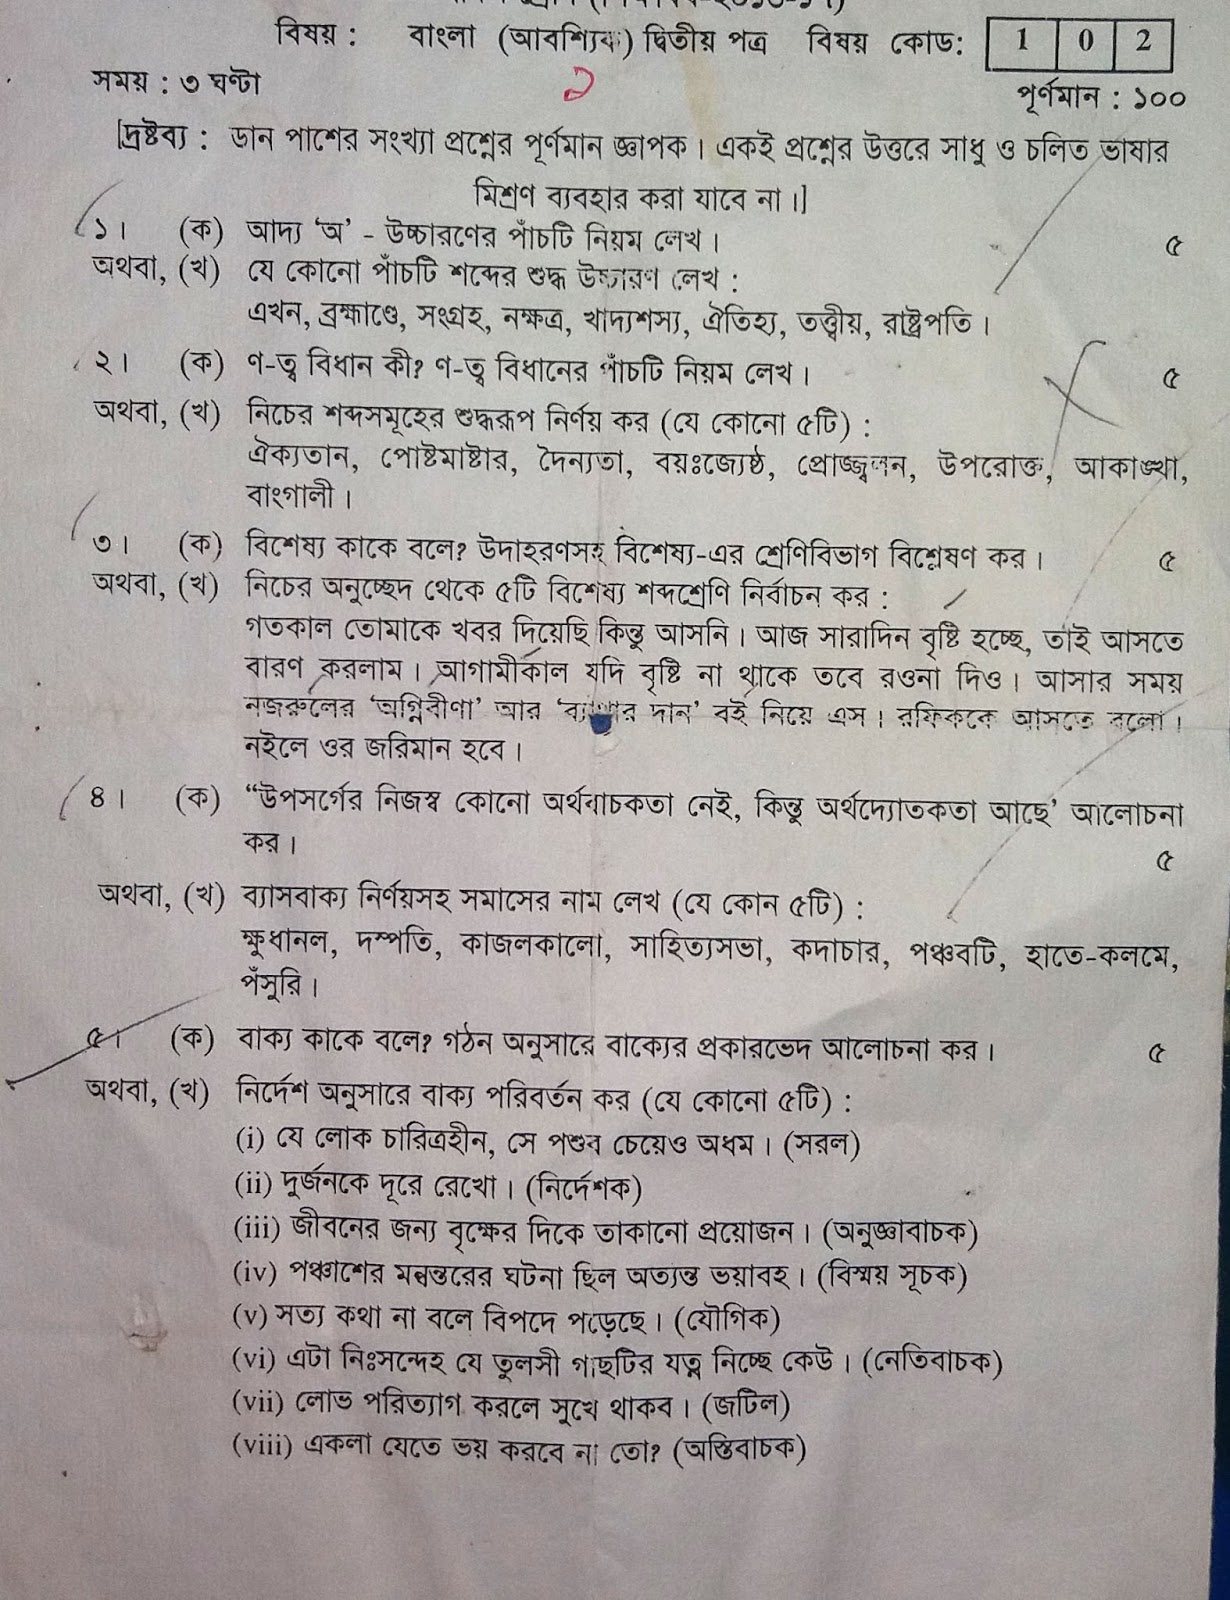 বিষয় : বাংলা (আবশ্যিক) দ্বিতীয় পত্র বিষয় কোড: 1 0 2
সময় : ৩ ঘণ্টা
পূর্ণমান : ১০০
[দ্রষ্টব্য : ডান পাশের সংখ্যা প্রশ্নের পূর্ণমান জ্ঞাপক। একই প্রশ্নের উত্তরে সাধু ও চলিত ভাষার
মিশ্রণ ব্যবহার করা যাবে না।]
১। (ক) আদ্য ‘অ’ - উচ্চারণের পাঁচটি নিয়ম লেখ। ৫
অথবা, (খ) যে কোনো পাঁচটি শব্দের শুদ্ধ উচ্চারণ লেখ :
এখন, ব্রহ্মাণ্ডে, সংগ্রহ, নক্ষত্র, খাদ্যশস্য, ঐতিহ্য, তত্ত্বীয়, রাষ্ট্রপতি।
২। (ক) ণ-ত্ব বিধান কী? ণ-ত্ব বিধানের পাঁচটি নিয়ম লেখ। ৫
অথবা, (খ) নিচের শব্দসমূহের শুদ্ধরূপ নির্ণয় কর (যে কোনো ৫টি) :
ঐক্যতান, পোষ্টমাষ্টার, দৈন্যতা, বয়ঃজ্যেষ্ঠ, প্রোজ্জ্বলন, উপরোক্ত, আকাঙ্খা,
বাংগালী।
৩। (ক) বিশেষ্য কাকে বলে? উদাহরণসহ বিশেষ্য-এর শ্রেণিবিভাগ বিশ্লেষণ কর। ৫
অথবা, (খ) নিচের অনুচ্ছেদ থেকে ৫টি বিশেষ্য শব্দশ্রেণি নির্বাচন কর :
গতকাল তোমাকে খবর দিয়েছি কিন্তু আসনি। আজ সারাদিন বৃষ্টি হচ্ছে, তাই আসতে
বারণ করলাম। আগামীকাল যদি বৃষ্টি না থাকে তবে রওনা দিও। আসার সময়
নজরুলের ‘অগ্নিবীণা’ আর ‘ব্যথার দান’ বই নিয়ে এস। রফিককে আসতে বলো।
নইলে ওর জরিমান হবে।
৪। (ক) “উপসর্গের নিজস্ব কোনো অর্থবাচকতা নেই, কিন্তু অর্থদ্যোতকতা আছে’ আলোচনা
কর। ৫
অথবা, (খ) ব্যাসবাক্য নির্ণয়সহ সমাসের নাম লেখ (যে কোন ৫টি) :
ক্ষুধানল, দম্পতি, কাজলকালো, সাহিত্যসভা, কদাচার, পঞ্চবটি, হাতে-কলমে,
পঁসুরি।
৫। (ক) বাক্য কাকে বলে? গঠন অনুসারে বাক্যের প্রকারভেদ আলোচনা কর। ৫
অথবা, (খ) নির্দেশ অনুসারে বাক্য পরিবর্তন কর (যে কোনো ৫টি) :
(i) যে লোক চারিত্রহীন, সে পশুব চেয়েও অধম। (সরল)
(ii) দুর্জনকে দূরে রেখো। (নির্দেশক)
(iii) জীবনের জন্য বৃক্ষের দিকে তাকানো প্রয়োজন। (অনুজ্ঞাবাচক)
(iv) পঞ্চাশের মন্বন্তরের ঘটনা ছিল অত্যন্ত ভয়াবহ। (বিস্ময় সূচক)
(v) সত্য কথা না বলে বিপদে পড়েছে। (যৌগিক)
(vi) এটা নিঃসন্দেহ যে তুলসী গাছটির যত্ন নিচ্ছে কেউ। (নেতিবাচক)
(vii) লোভ পরিত্যাগ করলে সুখে থাকব। (জটিল)
(viii) একলা যেতে ভয় করবে না তো? (অস্তিবাচক)